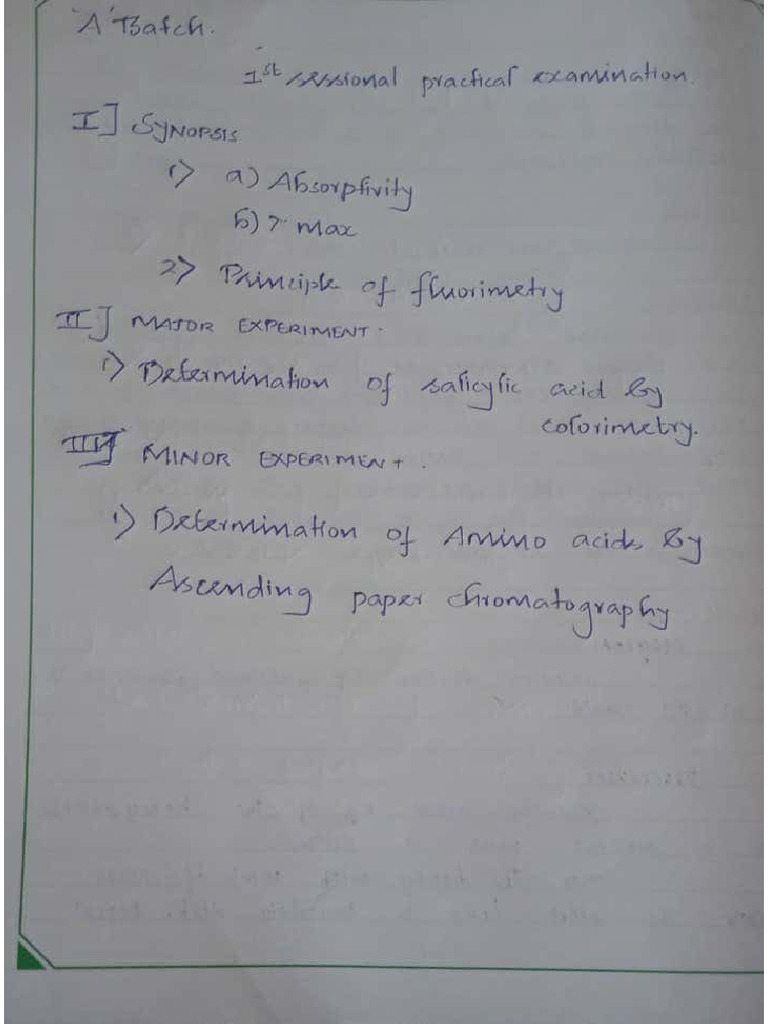 'A' Batch.
1st sessional practical examination.
I] SYNOPSIS
1) a) Absorptivity
b) λ max
2) Principle of fluorimetry
II] MAJOR EXPERIMENT.
1) Determination of salicylic acid by
colorimetry.
III] MINOR EXPERIMENT.
1) Determination of Amino acids by
Ascending paper chromatography